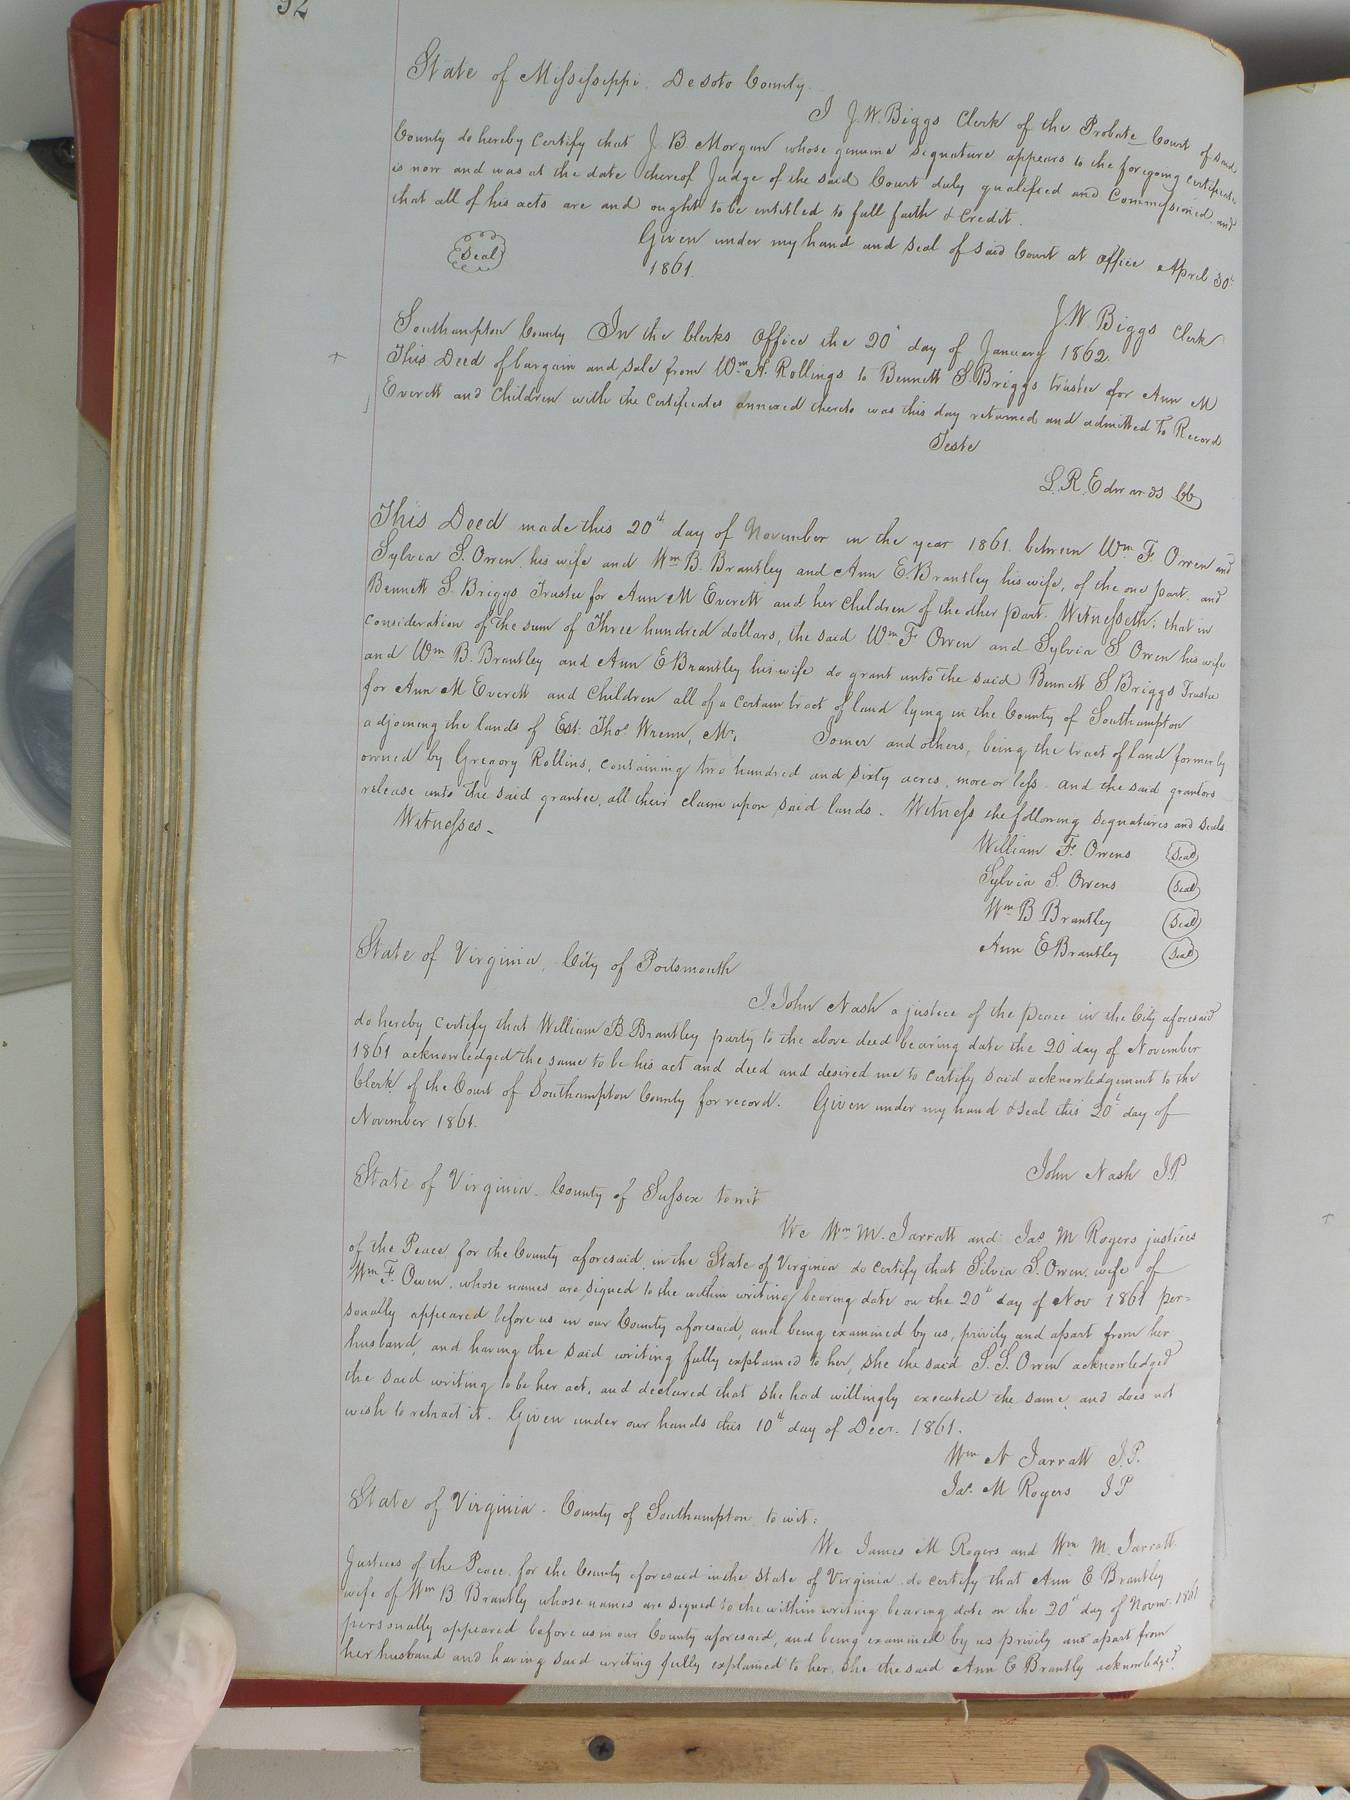 92
State of Mississippi. Desoto County.
I J. W. Biggs Clerk of the Probate Court of said
County do hereby Certify that J. B. Morgan whose genuine signature appears to the foregoing certificate
is now and was at the date thereof Judge of the said Court duly qualified and Commissioned, and
that all of his acts are and ought to be entitled to full faith & Credit.
Given under my hand and seal of said Court at office April 30th
Seal
1861.
J. W Biggs Clerk
Southampton County In the Clerks Office the 20th day of January 1862.
This Deed of bargain and sale from Wm H. Rollings to Bennett S. Briggs trustee for Ann M
Everett and Children with the Certificates annexed thereto was this day returned and admitted to Record
Teste
L. R. Edwards CC
This Deed made this 20th day of November in the year 1861. between Wm F. Owen and
Sylvia S. Owen, his wife and Wm B. Brantley and Ann E. Brantley his wife, of the one part, and
Bennett S. Briggs Trustee for Ann M Everett and her Children of the other part. Witnesseth: that in
consideration of the sum of Three hundred dollars, the said Wm F Owen and Sylvia S Owen his wife
and Wm B. Brantley and Ann E Brantley his wife do grant unto the said Bennett S Briggs Trustee
for Ann M Everett and Children all of a certain tract of land lying in the County of Southampton
adjoining the lands of Est: Thos Wrenn, Mr. Joiner and others, being the tract of land formerly
owned by Gregory Rollins, containing two hundred and sixty acres, more or less. and the said grantors
release unto the said grantee, all their claim upon said lands. Witness the following signatures and seals
Witnesses -
William F. Owens Seal
Sylvia S. Owens Seal
Wm B Brantley Seal
Ann E Brantley Seal
State of Virginia, City of Portsmouth
I. John Nash a justice of the peace in the City aforesaid
do hereby certify that William B. Brantley party to the above deed bearing date the 20 day of November
1861 acknowledged the same to be his act and deed and desired me to certify said acknowledgement to the
Clerk of the Court of Southampton County for record. Given under my hand & seal this 20t day of
November 1861.
John Nash J.P.
State of Virginia. County of Sussex to wit
We Wm M. Jarratt and Jas M Rogers justices
of the Peace for the County aforesaid, in the State of Virginia do certify that Silvia S. Owen, wife of
Wm F. Owen, whose names are signed to the within writing bearing date on the 20th day of Nov 1861 per=
sonally appeared before us in our County aforesaid, and being examined by us, privily and apart from her
husband, and having the said writing fully explained to her, she the said S. S. Owen acknowledged
the said writing to be her act, and declared that she had willingly executed the same, and does not
wish to retract it. Given under our hands this 10th day of Decr. 1861.
Wm N Jarratt J.P.
Jas. M Rogers JP
State of Virginia - County of Southampton to wit:
We James M Rogers and Wm M. Jarratt
Justices of the Peace for the County aforesaid in the State of Virginia do certify that Ann E Brantley
wife of Wm B Brantly whose names are signed to the within writing bearing date on the 20th day of Novmr. 1861
personally appeared before us in our County aforesaid, and being examined by us privily and apart from
her husband and having said writing fully explained to her, she the said Ann E Brantly acknowledged